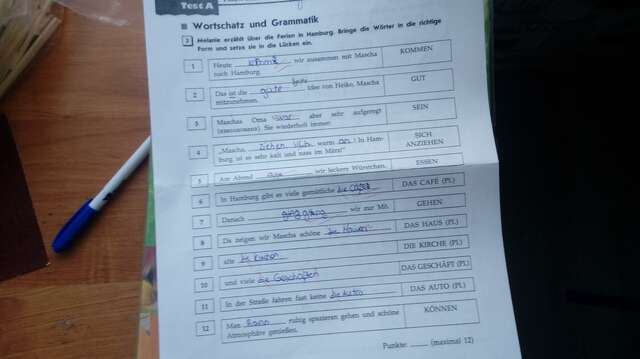 Test A
Wortschatz und Grammatik
3 Melanie erzählt über die Ferien in Hamburg. Bringe die Wörter in die richtige
Form und setze sie in die Lücken ein.
1 Heute wir zusammen mit Mascha KOMMEN
nach Hamburg.
2 Das ist die gute Idee von Heiko, Mascha GUT
mitzunehmen.
3 Maschas Oma war aber sehr aufgeregt SEIN
Sie wiederholt immer:
4 „Mascha, ziehen warm an! In Ham- SICH
burg ist es sehr kalt und nass im März!" ANZIEHEN
5 Am Abend wir leckere Würstchen. ESSEN
6 In Hamburg gibt es viele gemütliche die Cafes DAS CAFÉ (PL)
7 Danach ging wir zur Mö. GEHEN
8 Da zeigen wir Mascha schöne die DAS HAUS (PL)
9 alte die DIE KIRCHE (PL)
10 und viele die Geschäften DAS GESCHÄFT (PL)
11 In der Straße fahren fast keine die Auto DAS AUTO (PL)
12 Man kann ruhig spazieren gehen und schöne KÖNNEN
Atmosphäre genießen.
Punkte: (maximal 12)